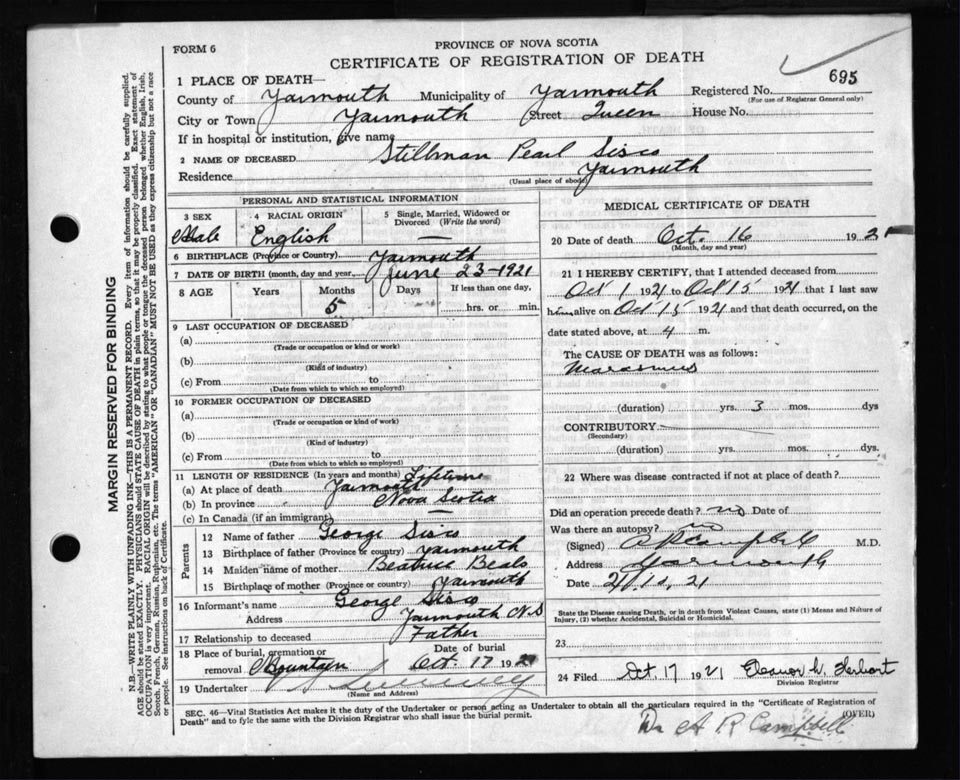 FORM 6
PROVINCE OF NOVA SCOTIA
CERTIFICATE OF REGISTRATION OF DEATH
695
1 PLACE OF DEATH—
County of Yarmouth Municipality of Yarmouth Registered No.
(For use of Registrar General only)
City or Town Yarmouth Street Queen House No.
If in hospital or institution, give name
2 NAME OF DECEASED Stillman Pearl Sisco
Residence Yarmouth
(Usual place of abode)
PERSONAL AND STATISTICAL INFORMATION
3 SEX 4 RACIAL ORIGIN 5 Single, Married, Widowed or Divorced (Write the word)
Male English —
6 BIRTHPLACE (Province or Country) Yarmouth
7 DATE OF BIRTH (month, day and year, June 23-1921
8 AGE Years Months Days If less than one day,
5 hrs. or min.
9 LAST OCCUPATION OF DECEASED
(a)
(Trade or occupation or kind or work)
(b)
(Kind of industry)
(c) From to
(Date from which to which so employed)
10 FORMER OCCUPATION OF DECEASED
(a)
(Trade or occupation or kind of work)
(b)
(Kind of industry)
(c) From to
(Date from which to which so employed)
11 LENGTH OF RESIDENCE (In years and months) Lifetime
(a) At place of death Yarmouth
(b) In province Nova Scotia
(c) In Canada (if an immigrant) —
Parents
12 Name of father George Sisco
13 Birthplace of father (Province or country) Yarmouth
14 Maiden name of mother Beatrice Beals
15 Birthplace of mother (Province or country) Yarmouth
16 Informant's name George Sisco
Address Yarmouth N.S
17 Relationship to deceased Father
18 Place of burial, cremation or removal Mountain Date of burial Oct. 17 1921
19 Undertaker
(Name and Address)
MEDICAL CERTIFICATE OF DEATH
20 Date of death Oct. 16 1921
(Month, day and year)
21 I HEREBY CERTIFY, that I attended deceased from
Oct 1 1921 to Oct 15 1921 that I last saw
him alive on Oct 15 1921 and that death occurred, on the
date stated above, at 4 m.
The CAUSE OF DEATH was as follows:
Marasmus
(duration) yrs. 3 mos. dys
CONTRIBUTORY
(Secondary)
(duration) yrs. mos. dys
22 Where was disease contracted if not at place of death?
Did an operation precede death? no Date of
Was there an autopsy? no
(Signed) A R Campbell M.D.
Address Yarmouth
Date
State the Disease causing Death, or in death from Violent Causes, state (1) Means and Nature of Injury, (2) whether Accidental, Suicidal or Homicidal.
23
24 Filed Oct 17 1921
Division Registrar
SEC. 46—Vital Statistics Act makes it the duty of the Undertaker or person acting as Undertaker to obtain all the particulars required in the "Certificate of Registration of
Death" and to fyle the same with the Division Registrar who shall issue the burial permit. (OVER)
Dr A R Campbell
MARGIN RESERVED FOR BINDING
N.B.—WRITE PLAINLY WITH UNFADING INK—THIS IS A PERMANENT RECORD. Every item of information should be carefully supplied.
AGE should be stated EXACTLY. PHYSICIANS should STATE CAUSE OF DEATH in plain terms, so that it may be properly classified. Exact statement of
OCCUPATION is very important. RACIAL ORIGIN will be described by stating to what people or tongue the deceased person belonged whether English, Irish,
Scotch, French, German, Russian, Ruthenian, etc. The terms "AMERICAN" OR "CANADIAN" MUST NOT BE USED as they express citizenship but not a race
or people. See instructions on back of Certificate.